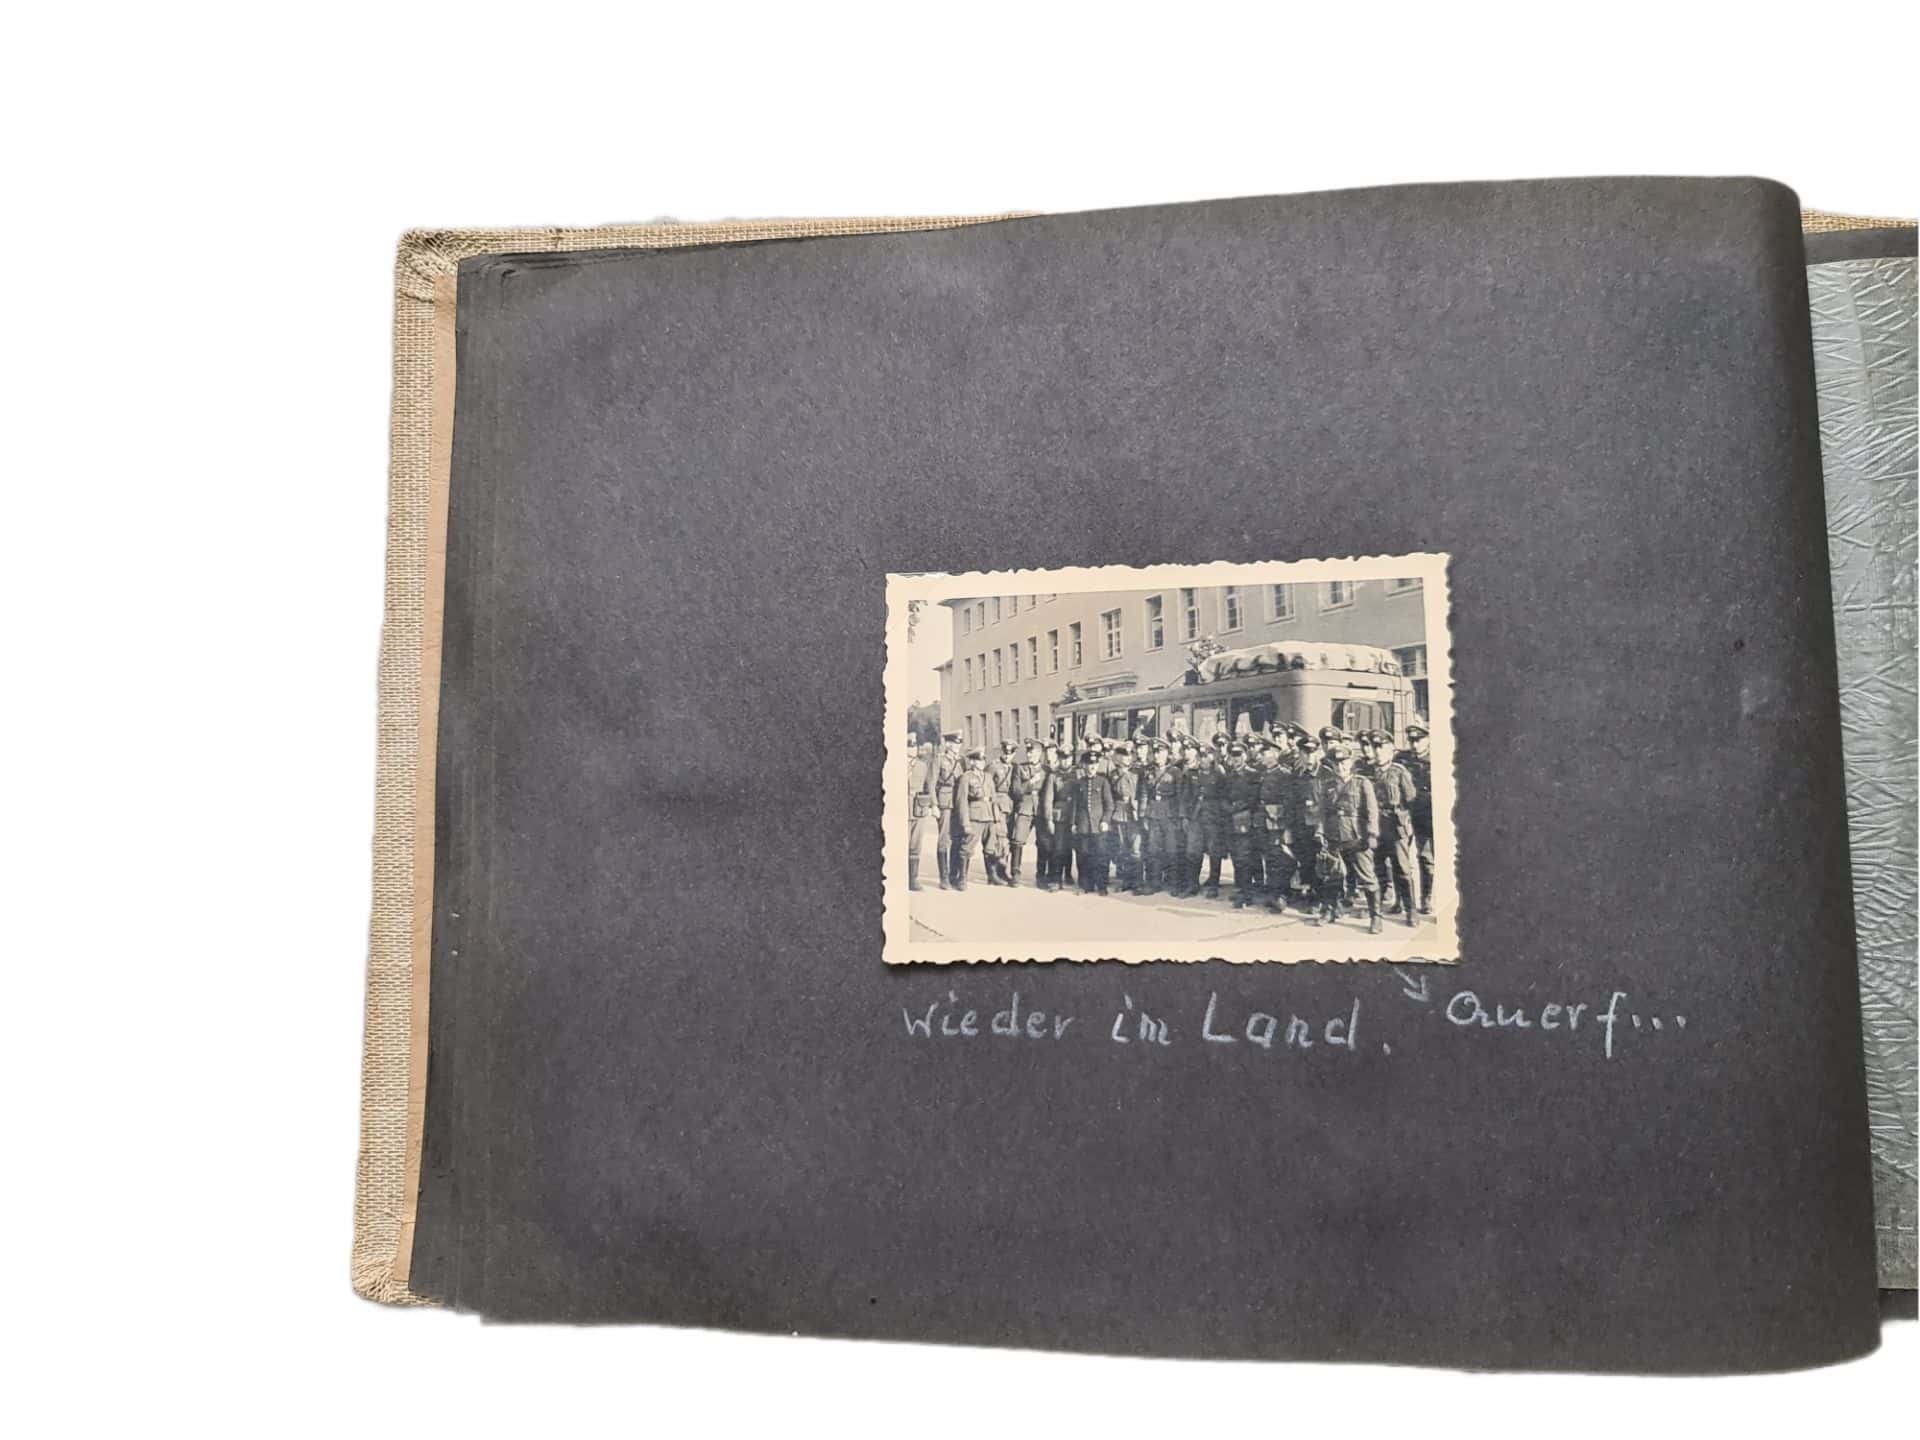 Wieder im Land. Querf...